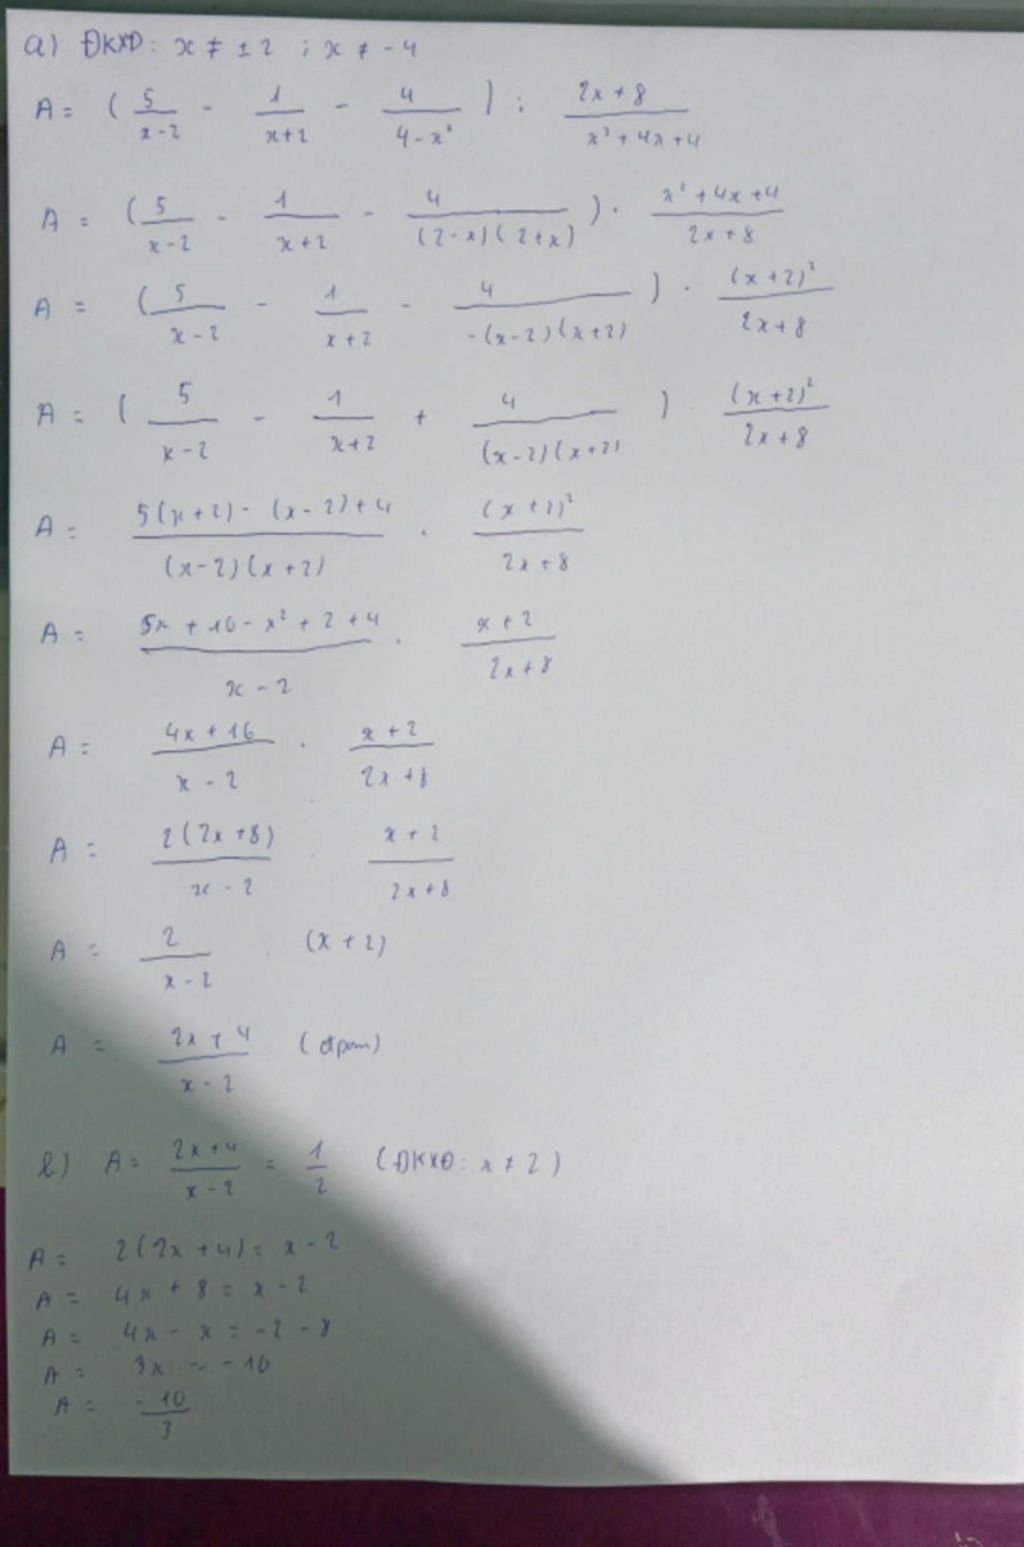 a) ĐKXĐ: x ≠ ± 2 ; x ≠ - 4
A = ( 5/(x-2) - 1/(x+2) - 4/(4-x²) ) : (2x+8)/(x²+4x+4)
A = ( 5/(x-2) - 1/(x+2) - 4/((2-x)(2+x)) ) . (x²+4x+4)/(2x+8)
A = ( 5/(x-2) - 1/(x+2) - 4/(-(x-2)(x+2)) ) . (x+2)²/(2x+8)
A = ( 5/(x-2) - 1/(x+2) + 4/((x-2)(x+2)) ) . (x+2)²/(2x+8)
A = (5(x+2) - (x-2)+4)/((x-2)(x+2)) . (x+2)²/(2x+8)
A = (5x + 10 - x² + 2 + 4)/(x-2) . (x+2)/(2x+8)
A = (4x+16)/(x-2) . (x+2)/(2x+8)
A = 2(2x+8)/(x-2) . (x+2)/(2x+8)
A = 2/(x-2) . (x+2)
A = (2x+4)/(x-2) (đpcm)
b) A = (2x+4)/(x-2) = 1/2 (ĐKXĐ: x ≠ 2)
A = 2(2x+4) = x-2
A = 4x + 8 = x - 2
A = 4x - x = -2 - 8
A = 3x = -10
A = -10/3